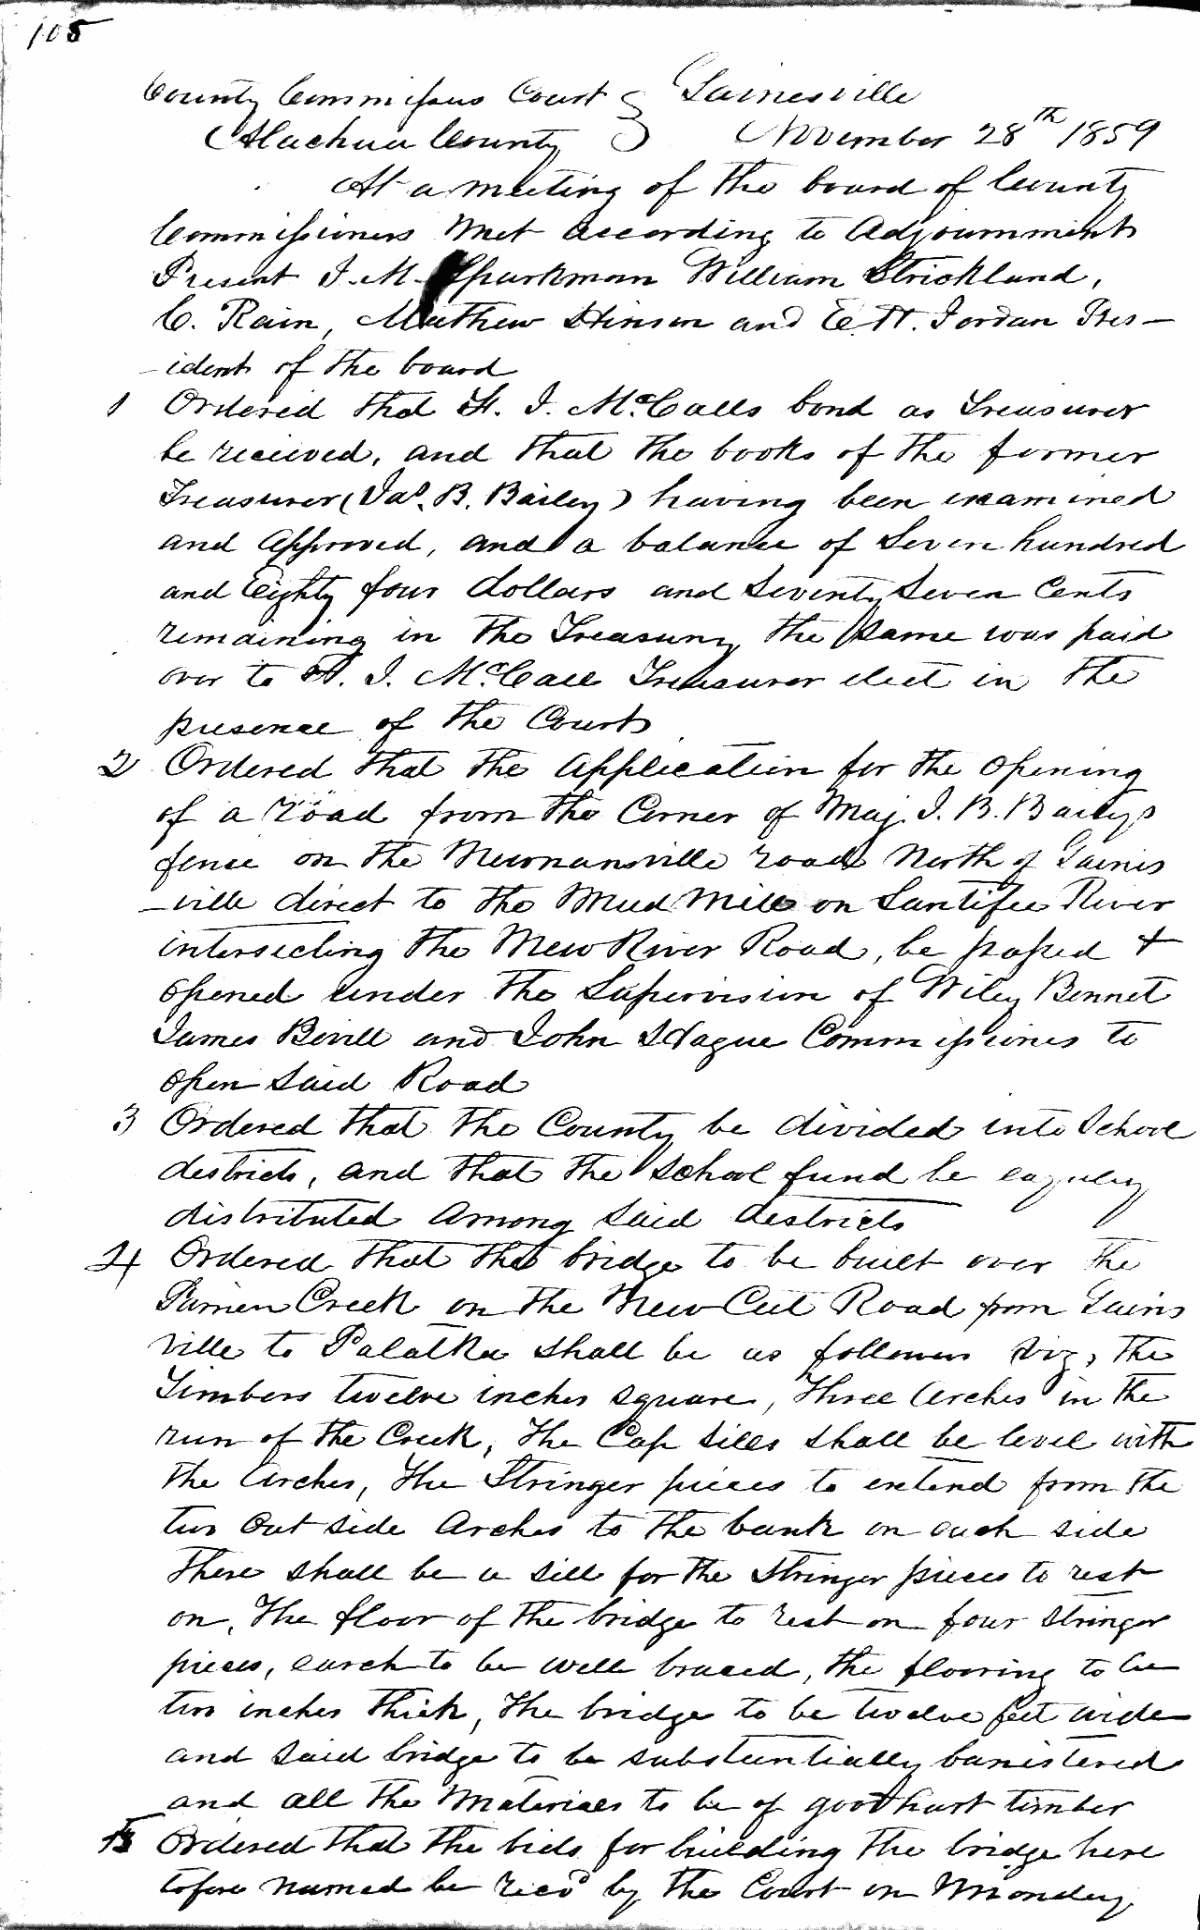 108
County Commissions Court } Gainesville
Alachua County } November 28th 1859
At a meeting of the board of County
Commissioners met according to Adjournment
Present J. M. Sparkman William Strickland,
C. Rain, Mathew Hinson and E. Jordan Pres-
-ident of the board
1 Ordered that H. J. McCalls bond as Treasurer
be recieved, and that the books of the former
Treasurer (Jas. B. Bailey) having been examined
and Approved, and a balance of Seven hundred
and Eighty four dollars and Seventy Seven Cents
remaining in the Treasury the same was paid
over to H. J. McCall Treasurer elect in the
presence of the Court
2 Ordered that the application for the opening
of a road from the Corner of Maj. J. B. Baileys
fence on the Newnansville road North of Gaines
-ville direct to the Mud Mill on Santifee River
intersecting the New River Road, be passed +
opened under the Supervision of Wiley Bennet
James Bevill and John Hague Commissioners to
open said Road
3 Ordered that the County be divided into School
districts, and that the School fund be equaly
distributed among said districts
4 Ordered that the bridge to be built over the
Creek on the New Cut Road from Gains
ville to Palatka shall be as follows viz, the
Timbers twelve inches square, Three Arches in the
run of the Creek, The Cap Sills shall be level with
the Arches, The Stringer pieces to extend from the
two out side Arches to the bank on each side
There shall be a sill for the Stringer pieces to rest
on, The floor of the bridge to rest on four stringer
pieces, each to be well braced, the flooring to be
two inches thick, The bridge to be twelve feet wide
and said bridge to be substantially banistered
and all the Materials to be of good hart timber
5 Ordered that the bids for building the bridge here
tofore named be recd by the Court on Monday